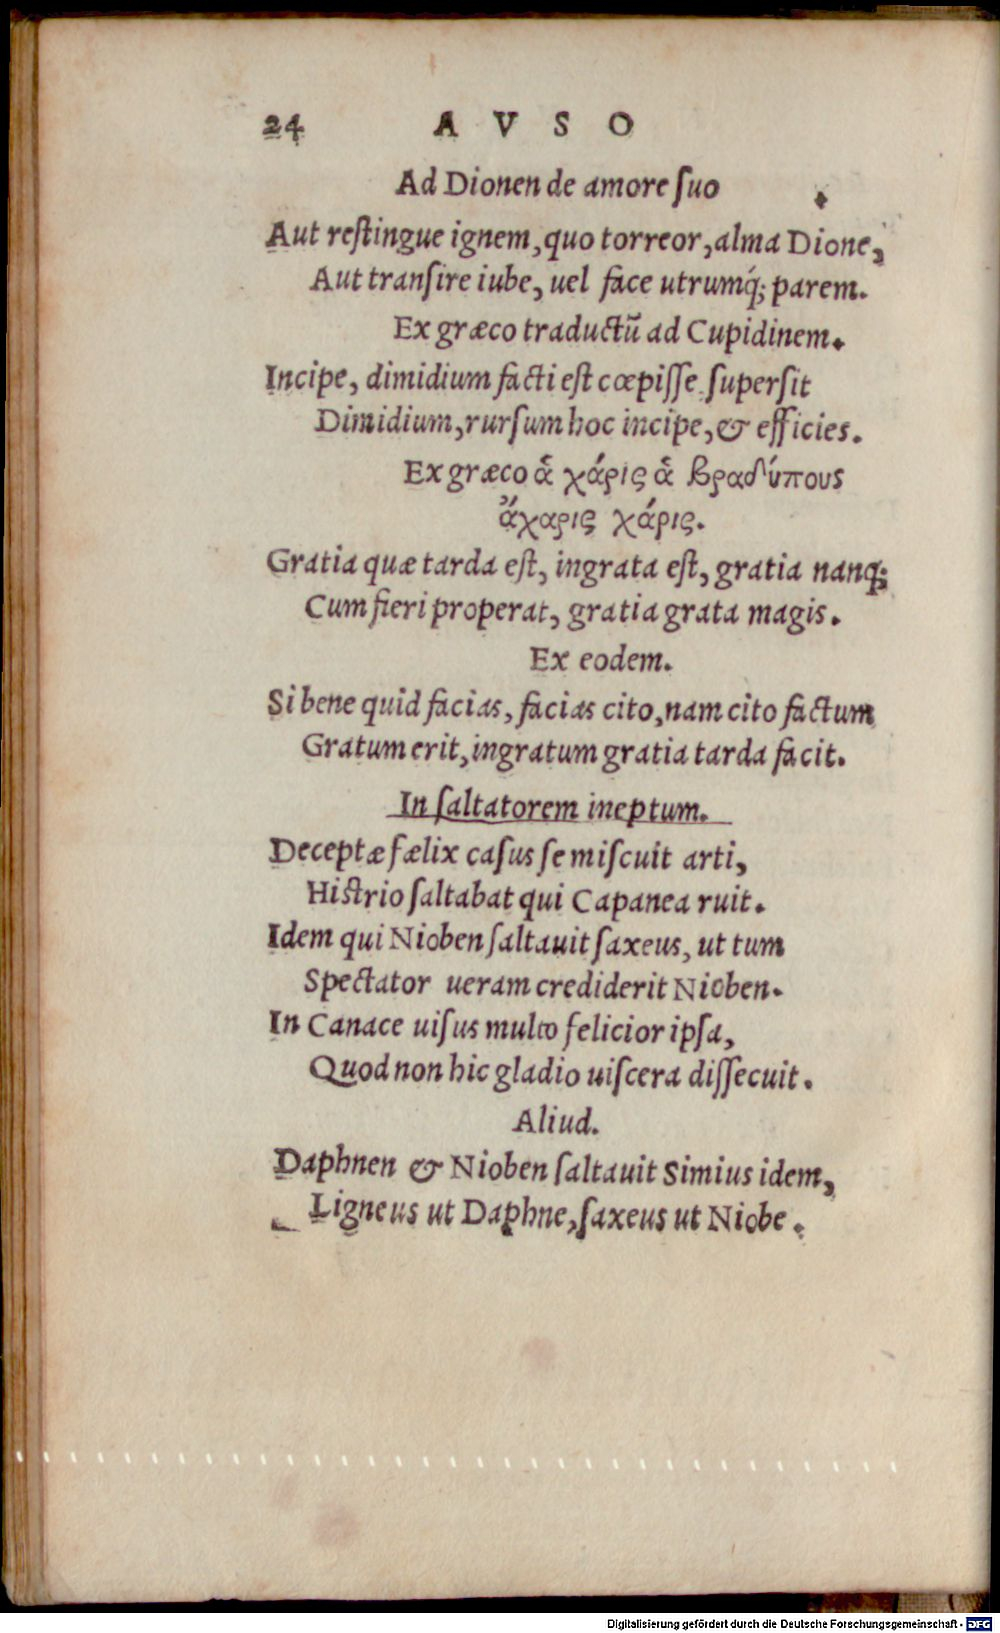 24 AVSO
Ad Dionen de amore ſuo
Aut reſtingue ignem, quo torreor, alma Dione,
Aut tranſire iube, uel face utrumq́; parem.
Ex græco traductũ ad Cupidinem.
Incipe, dimidium facti eſt cœpiſſe ſuperſit
Dimidium, rurſum hoc incipe, & efficies.
Ex græco ἃ χάρις ἃ βραδύπους
ἄχαρις χάρις.
Gratia quæ tarda eſt, ingrata eſt, gratia nanq;
Cum fieri properat, gratia grata magis.
Ex eodem.
Si bene quid facias, facias cito, nam cito factum
Gratum erit, ingratum gratia tarda facit.
In ſaltatorem ineptum.
Deceptæ fælix caſus ſe miſcuit arti,
Hiſtrio ſaltabat qui Capanea ruit.
Idem qui Nioben ſaltauit ſaxeus, ut tum
Spectator ueram crediderit Nioben.
In Canace uiſus multo felicior ipſa,
Quod non hic gladio uiſcera diſſecuit.
Aliud.
Daphnen & Nioben ſaltauit Simius idem,
Ligneus ut Daphne, ſaxeus ut Niobe.
Digitalisierung gefördert durch die Deutsche Forschungsgemeinschaft - DFG